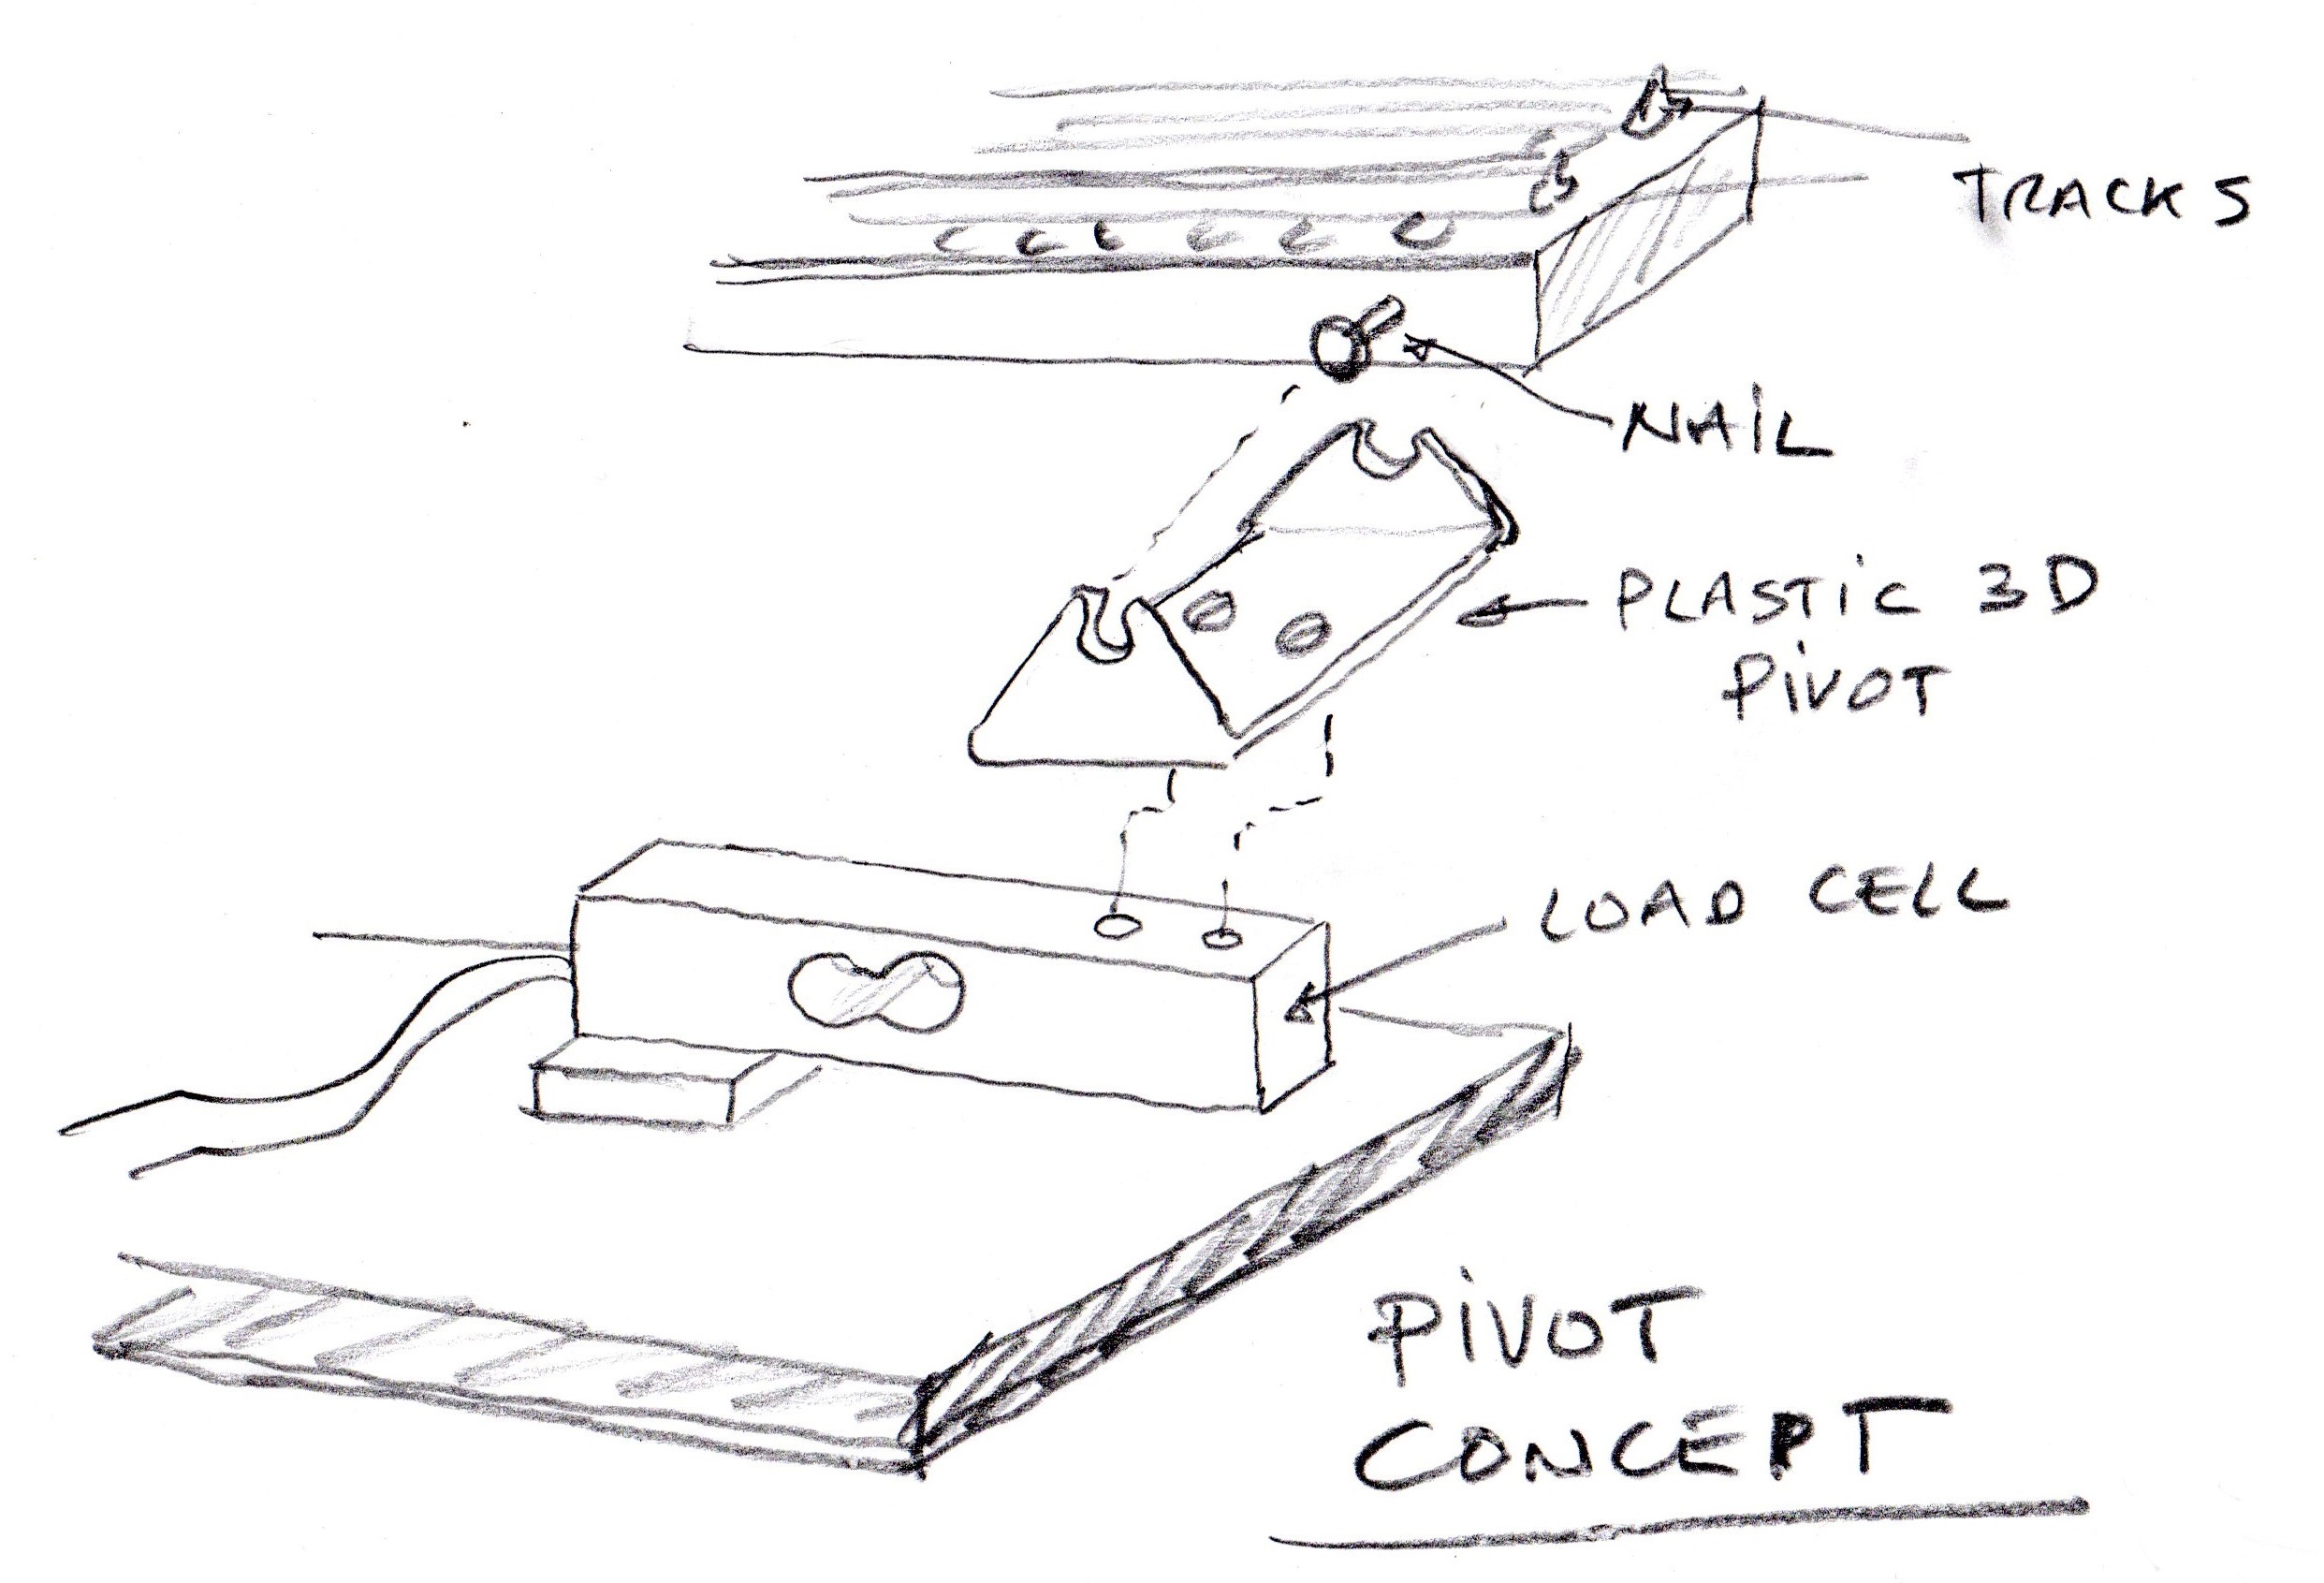 TRACKS
NAiL
PLASTiC 3D
PiVOT
LOAD CELL
PiVOT
CONCEPT